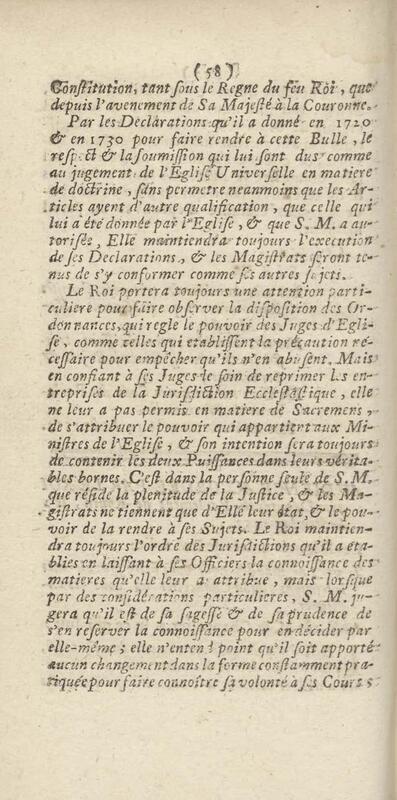 (58)
Constitution, tant sous le Regne du feu Roi, que
depuis l'avenement de Sa Majesté à la Couronne.
Par les Declarations qu'il a donné en 1720
& en 1730 pour faire rendre à cette Bulle, le
respect & la soumission qui lui sont dus comme
au jugement de l'Eglise Universelle en matiere
de doctrine, sans permetre neanmoins que les Ar-
ticles ayent d'autre qualification, que celle qui
lui a été donnée par l'Eglise, & que S. M. a au-
torisée, Elle maintiendra toujours l'execution
de ses Declarations, & les Magistrats seront te-
nus de s'y conformer comme ses autres sujets.
Le Roi portera toujours une attention parti-
culiere pour faire observer la disposition des Or-
donnances, qui regle le pouvoir des Juges d'Egli-
se, comme celles qui etablissent la précaution né-
cessaire pour empêcher qu'ils n'en abusent. Mais
en confiant à ses Juges le soin de reprimer les en-
treprises de la Jurisdiction Ecclesiastique, elle
ne leur a pas permis en matiere de Sacremens,
de s'attribuer le pouvoir qui appartient aux Mi-
nistres de l'Eglise, & son intention sera toujours
de contenir les deux Puissances dans leurs vérita-
bles bornes. C'est dans la personne seule de S. M.
que réside la plenitude de la Justice, & les Ma-
gistrats ne tiennent que d'Elle leur état, & le pou-
voir de la rendre à ses Sujets. Le Roi maintien-
dra toujours l'ordre des Jurisdictions qu'il a eta-
blies en laissant à ses Officiers la connoissance des
matieres qu'elle leur a attribue, mais lorsque
par des considérations particulieres, S. M. ju-
gera qu'il est de sa sagesse & de sa prudence de
s'en reserver la connoissance pour en décider par
elle-même; elle n'enten l point qu'il soit apporté
aucun changement dans la forme constamment pra-
tiquée pour faire connoître sa volonté à ses Cours;